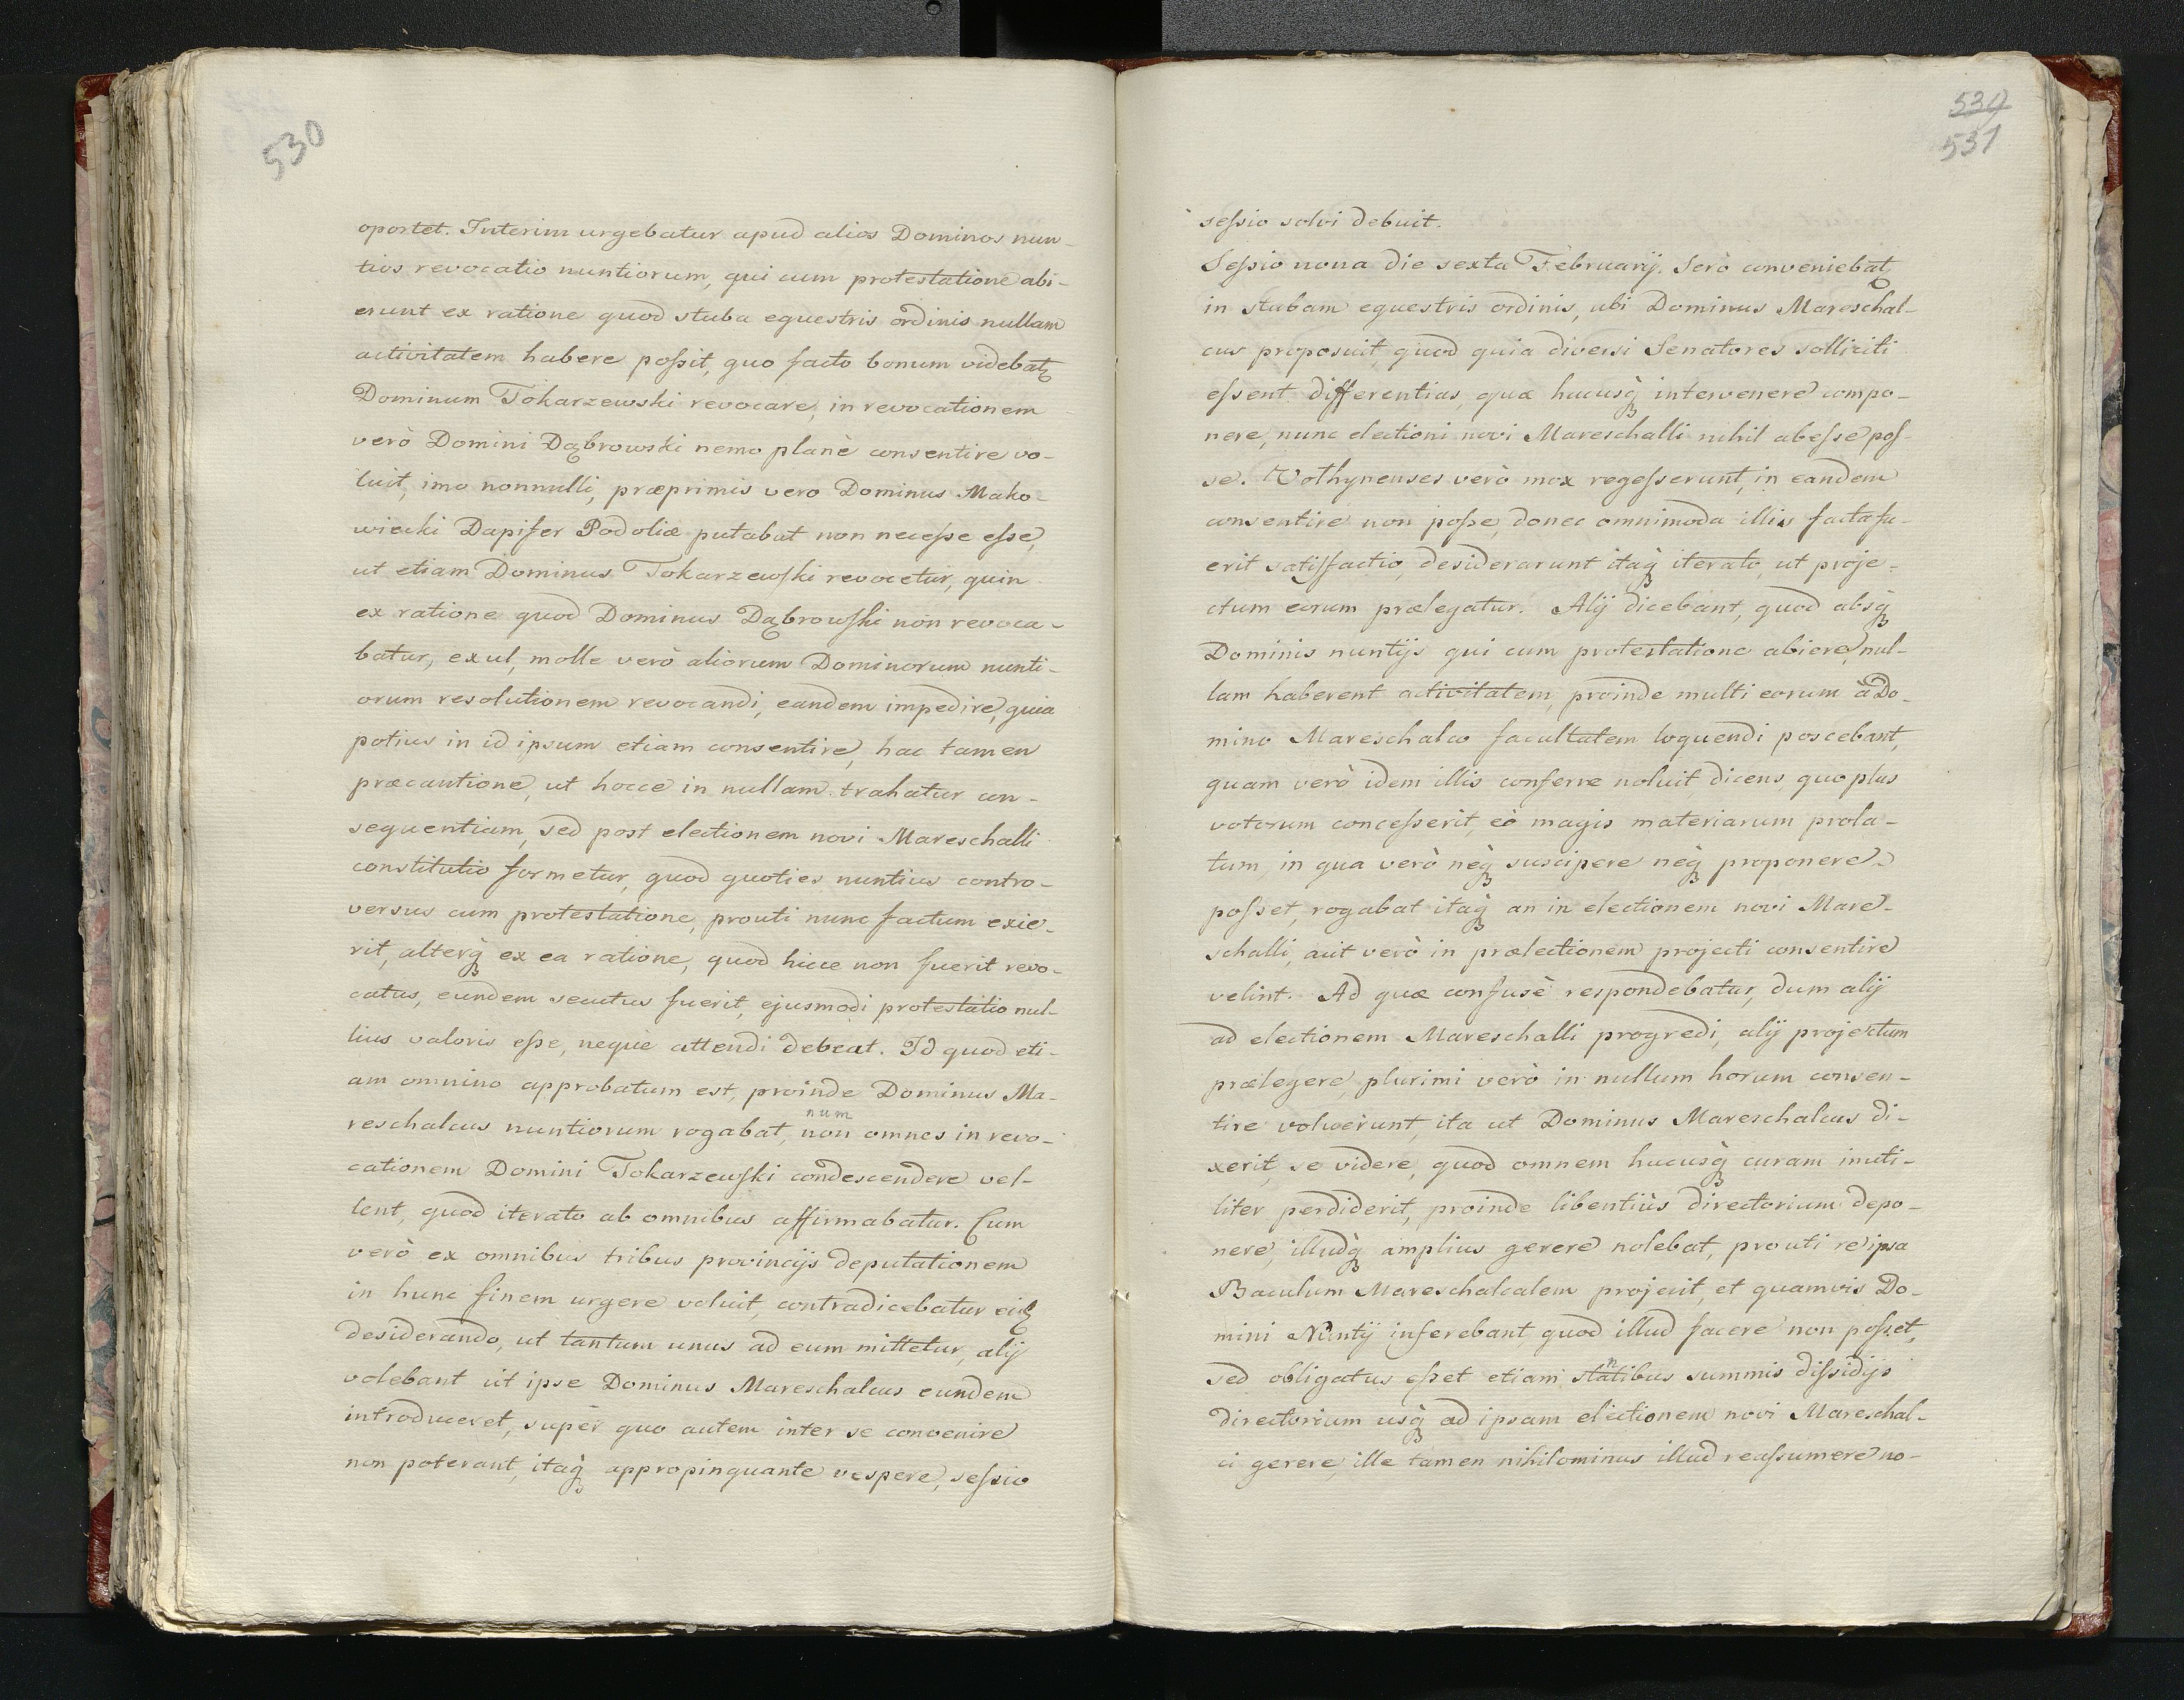 530
oportet. Interim urgebatur apud alios Dominos nun-
tios revocatio nuntiorum, qui cum protestatione abi-
erunt ex ratione quod stuba equestris ordinis nullam
activitatem habere poſsit, quo facto bonum videbatꝫ
Dominum Tokarzewski revocare, in revocationem
verò Domini Dąbrowski nemo planè consentire vo-
luit, imo nonnulli, præprimis vero Dominus Mako-
wiecki Dapifer Podoliæ putabat non neceſse eſse,
ut etiam Dominus Tokarzewſki revocetur, quin
ex ratione quod Dominus Dąbrowſki non revoca-
batur, exul, molle verò aliorum Dominorum nunti-
orum resolutionem revocandi, eandem impedire, quia
potius in id ipsum etiam consentire, hac tamen
præcautione, ut hocce in nullam trahatur con-
sequentiam, sed post electionem novi Mareschalli
constitutio formetur, quod quoties nuntius contro-
versus cum protestatione, prouti nunc factum exie-
rit, alterqꝫ ex ea ratione, quod hicce non fuerit revo-
catus, eundem secutus fuerit, ejusmodi protestatio nul-
lius valoris eſse, neque attendi debeat. Id quod eti-
am omnino approbatum est, proinde Dominus Ma-
num
reschalcus nuntiorum rogabat, non omnes in revo-
cationem Domini Tokarzewſki condescendere vel-
lent, quod iterato ab omnibus affirmabatur. Cum
verò ex omnibus tribus provincijs deputationem
in hunc finem urgere voluit, contradicebatur eiqꝫ
desiderando, ut tantum unus ad eum mittetur, alij
volebant ut ipse Dominus Mareschalcus eundem
introduceret, super quo autem inter se convenire
non poterant, itaqꝫ appropinquante vespere, seſsio
539
531
seſsio solvi debuit.
Seſsio nona die sexta Februarij. Serò conveniebatꝫ
in stubam equestris ordinis, ubi Dominus Mareschal-
cus proposuit, quod quia diversi Senatores solliciti
eſsent differentias, quæ hucusqꝫ intervenere compo-
nere, nunc electioni novi Mareschalli nihil abeſse poſ-
se. Volhynenses verò mox regeſserunt, in eandem
consentire non poſse, donec omnimoda illis facta fu-
erit satiſfactio, desiderarunt itaqꝫ iterato, ut proje-
ctum eorum prælegatur. Alij dicebant, quod absqꝫ
Dominis nuntijs qui cum protestatione abiere, nul-
lam haberent activitatem, proinde multi eorum à Do-
mino Mareschalco facultatem loquendi poscebant,
quam verò idem illis conferre noluit dicens, quo plus
votorum conceſserit, eò magis materiarum prola-
tum, in qua verò neqꝫ suscipere neqꝫ proponere
poſset, rogabat itaqꝫ an in electionem novi Mare-
schalli, aut verò in prælectionem projecti consentire
velint. Ad quæ confusè respondebatur, dum alij
ad electionem Mareschalli progredi, alij projectum
prælegere, plurimi verò in nullum horum consen-
tire voluerunt, ita ut Dominus Mareschalcus di-
xerit, se videre, quod omnem hucusqꝫ curam inuti-
liter perdiderit, proinde libentiùs directorium depo-
nere, illudqꝫ amplius gerere nolebat, prouti re ipsa
Baculum Mareschalcalem projecit, et quamvis Do-
mini Nuntij inferebant, quod illud facere non poſset,
n
sed obligatus eſset etiam statibus summis diſsidijs
directorium usqꝫ ad ipsam electionem novi Mareschal-
ci gerere, ille tamen nihilominus illud reaſsumere no-